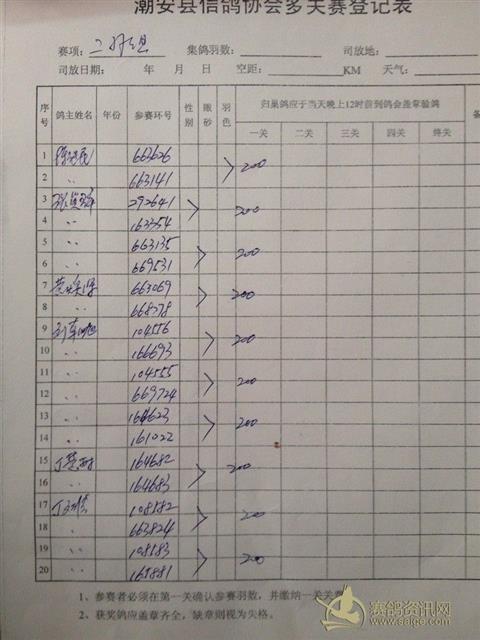 潮安县信鸽协会多关赛登记表
赛项： 二羽组 集鸽羽数： 司放地：
司放日期： 年 月 日 空距： KM 天气：
序号 鸽主姓名 年份 参赛环号 性别 眼砂 羽色 归巢鸽应于当天晚上12时前到鸽会盖章验鸽
一关 二关 三关 四关 终关 备
1 663626
2 〃 663141 200
3 292641
4 〃 163354 200
5 〃 663135
6 〃 669531 200
7 663069
8 〃 668278 200
9 104556
10 〃 166693 200
11 〃 104555
12 〃 669724 200
13 〃 166623
14 〃 161022 200
15 164682
16 〃 164683 200
17 108582
18 〃 663824 200
19 〃 108583
20 〃 200
1、参赛者必须在第一关确认参赛羽数，并缴纳一关关
2、获奖鸽应盖章齐全，缺章则视为失格。
赛鸽资讯网
www.saige.com